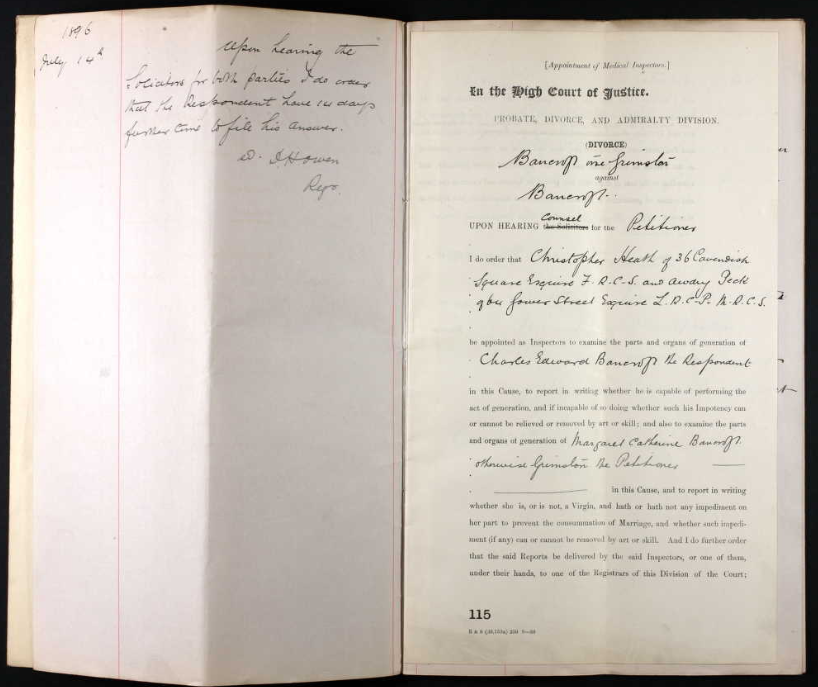 1896
July 14th
Upon hearing the
Solicitors for both parties I do order
that the Respondent have 14 days
further time to file his answer.
D. H Owen
Regr.
[Appointment of Medical Inspectors.]
In the High Court of Justice.
PROBATE, DIVORCE, AND ADMIRALTY DIVISION.
(DIVORCE)
Bancroft orse Grimston
against
Bancroft.
Counsel
UPON HEARING the Solicitors for the Petitioner
I do order that Christopher Heath of 36 Cavendish
Square Esquire F.R.C.S. and
Gower Street Esquire L.R.C.P. M.R.C.S.
be appointed as Inspectors to examine the parts and organs of generation of
Charles Edward Bancroft the Respondent
in this Cause, to report in writing whether he is capable of performing the
act of generation, and if incapable of so doing whether such his Impotency can
or cannot be relieved or removed by art or skill; and also to examine the parts
and organs of generation of Margaret Catherine Bancroft
otherwise Grimston the Petitioner
in this Cause, and to report in writing
whether she is, or is not, a Virgin, and hath or hath not any impediment on
her part to prevent the consummation of Marriage, and whether such impedi-
ment (if any) can or cannot be removed by art or skill. And I do further order
that the said Reports be delivered by the said Inspectors, or one of them,
under their hands, to one of the Registrars of this Division of the Court;
115